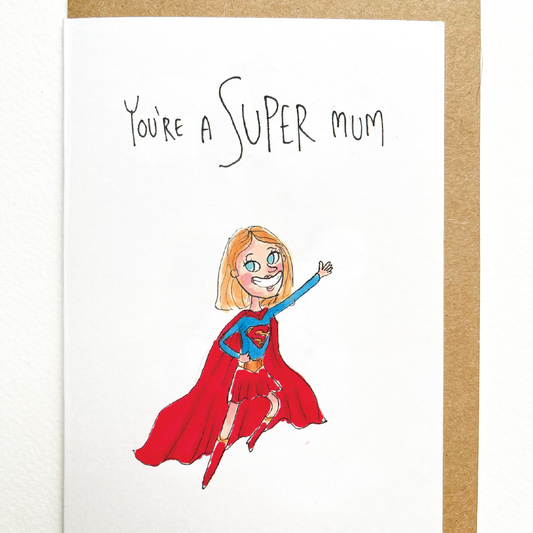 You're a SUPER mum
S